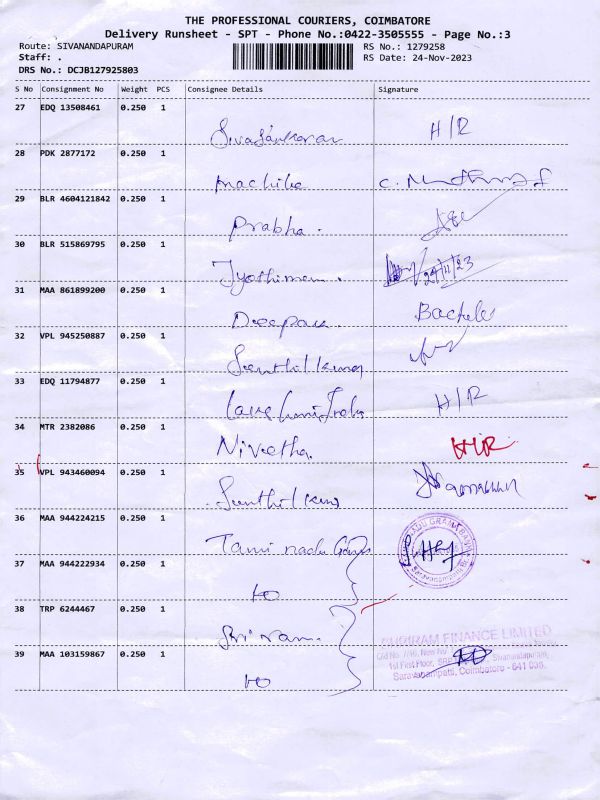 THE PROFESSIONAL COURIERS, COIMBATORE
Delivery Runsheet - SPT - Phone No.:0422-3505555 - Page No.:3
Route: SIVANANDAPURAM
RS No.: 1279258
Staff: .
RS Date: 24-Nov-2023
DRS No.: DCJB127925803
S No Consignment No Weight PCS Consignee Details Signature
27 EDQ 13508461 0.250 1
Sivasankaran H/R
28 PDK 2877172 0.250 1
29 BLR 4604121842 0.250 1
Prabha.
30 BLR 515869795 0.250 1
24/11/23
31 MAA 861899200 0.250 1
Deepak
32 VPL 945250887 0.250 1
Senthil kumar
33 EDQ 11794877 0.250 1
H/R
34 MTR 2382086 0.250 1
Nivetha. H/R
35 VPL 943460094 0.250 1
Senthil kumar
36 MAA 944224215 0.250 1
Tamil nadu
37 MAA 944222934 0.250 1
38 TRP 6244467 0.250 1
Sriram.
SHRIRAM FINANCE LIMITED
39 MAA 103159867 0.250 1
Sivanandapuram,
1st First Floor,
Saravanampatti, Coimbatore - 641 035.